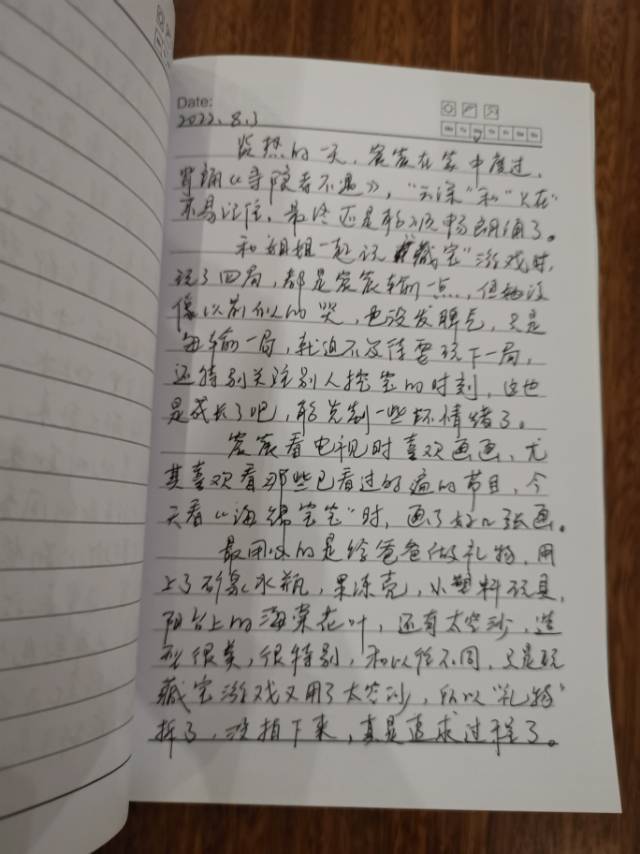 Date:
2022.8.3
炎热的一天,宸宸在家中度过,
背诵《寻隐者不遇》,“云深”和“只在”
不易记住,最终还是能流畅朗诵了。
和姐姐一起玩“藏宝”游戏时,
玩了四局,都是宸宸输一点,但她没
像以前似的哭,也没发脾气,只是
每输一局,就迫不及待要玩下一局,
还特别关注别人挖宝的时刻,这也
是成长了吧,能克制一些坏情绪了。
宸宸看电视时喜欢画画,尤
其喜欢看那些已看过的遍的节目,今
天看“海绵宝宝”时,画了好几张画。
最用心的是给爸爸做礼物,用
上了矿泉水瓶,果冻壳,小塑料玩具,
阳台上的海棠花叶,还有太空沙,造
型很美,很特别,和以往不同,只是玩
藏宝游戏又用了太空沙,所以“礼物”
拆了,没拍下来,真是追求过程了。